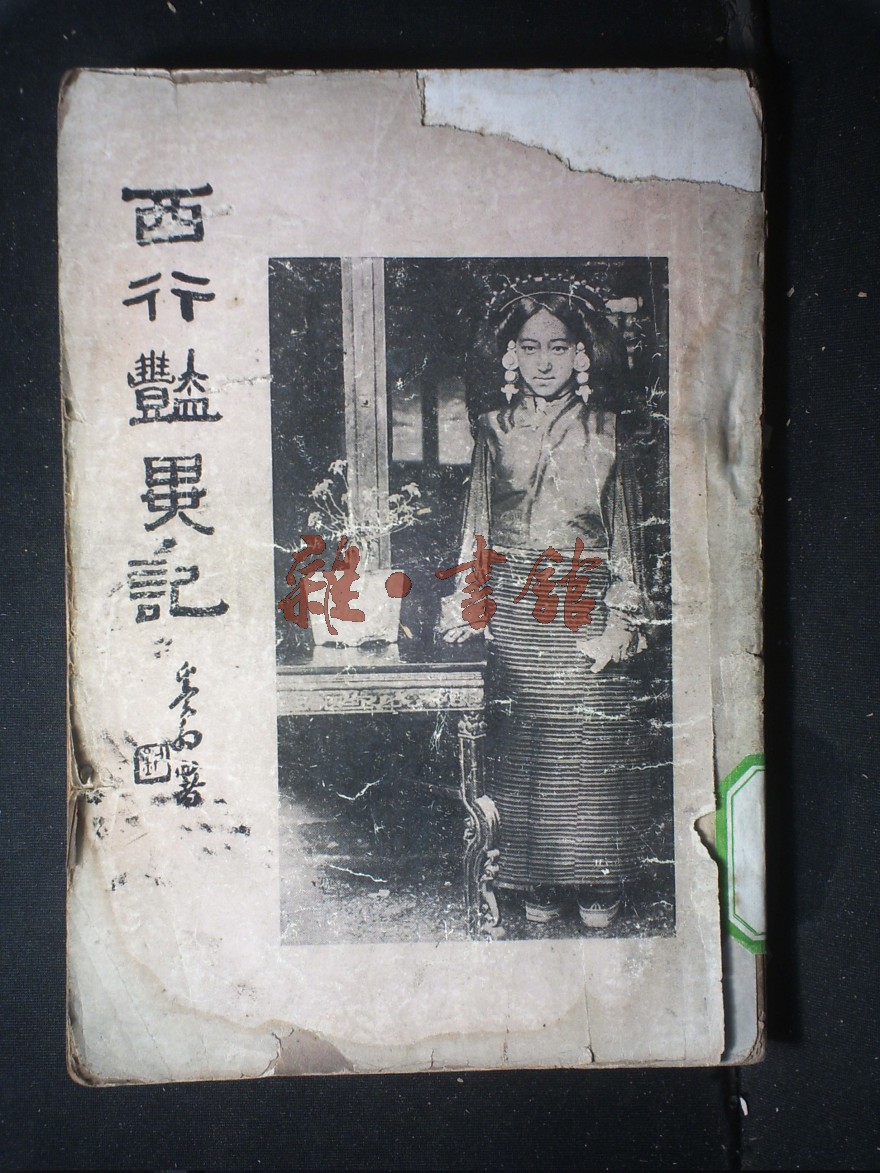 西行豔異記
著
雜·書館